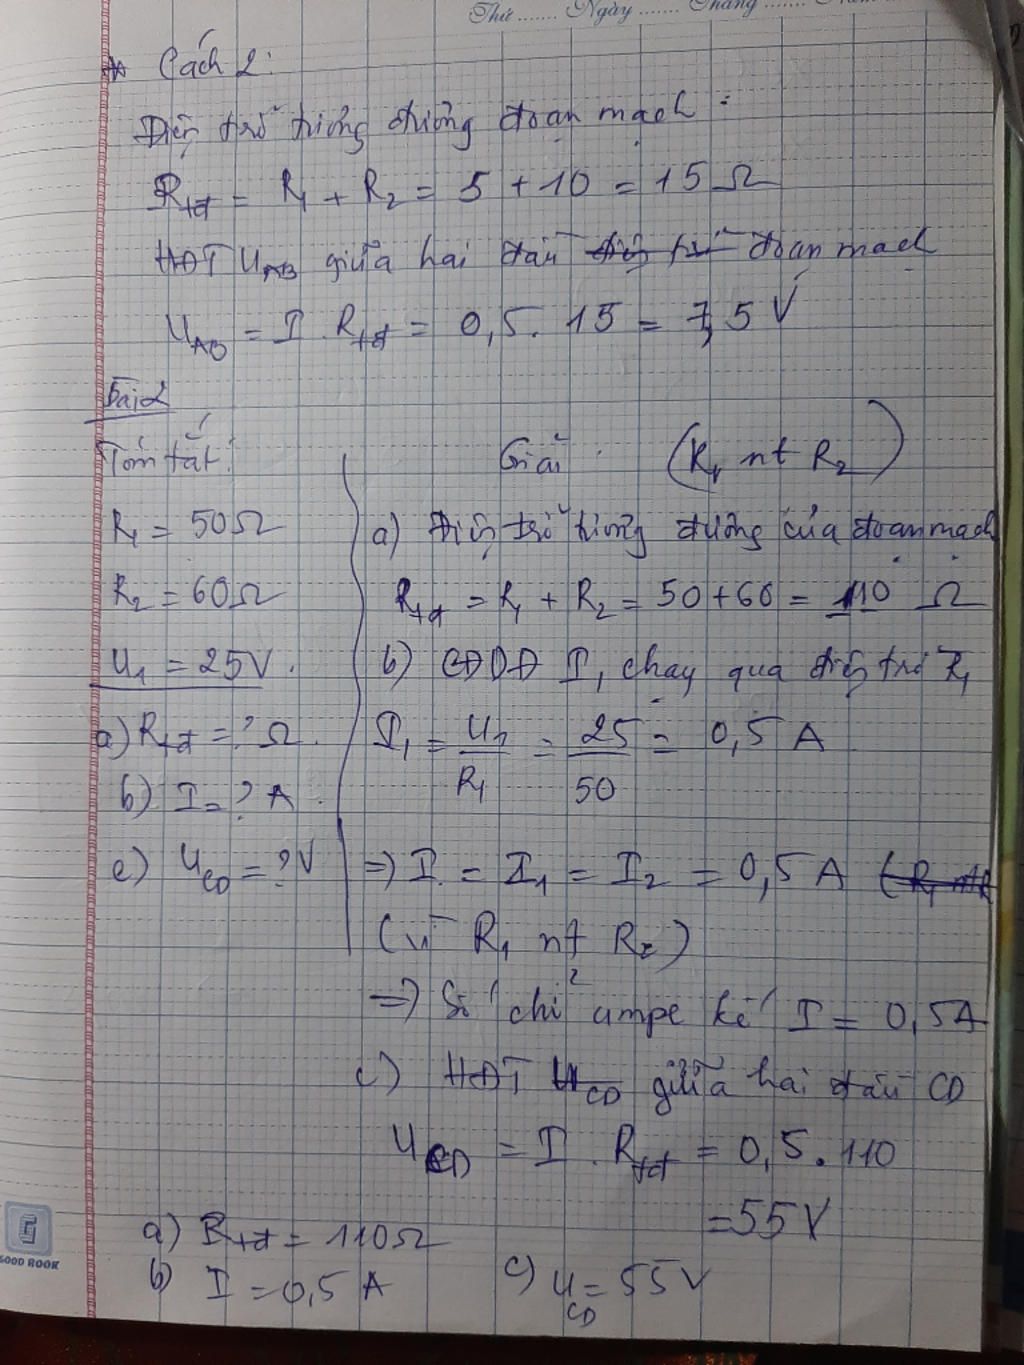 Thứ ....... Ngày ....... Tháng .......
* Cách 2:
Điện trở tương đương đoạn mạch :
Rtđ = R1 + R2 = 5 + 10 = 15 Ω
HĐT UAB giữa hai đầu điện trở đoạn mạch
UAB = I . Rtđ = 0,5 . 15 = 7,5 V
Bài 2
Tóm tắt:
R1 = 50Ω
R2 = 60Ω
U1 = 25V.
a) Rtđ = ? Ω.
b) I = ? A.
c) UCD = ? V
Giải : (R1 nt R2)
a) Điện trở tương đương của đoạn mạch
Rtđ = R1 + R2 = 50 + 60 = 110 Ω
b) CĐDĐ I1 chạy qua điện trở R1
I1 = U1/R1 = 25/50 = 0,5 A
=> I = I1 = I2 = 0,5 A
(vì R1 nt R2)
=> Số chỉ ampe kế I = 0,5A
c) HĐT UCD giữa hai đầu CD
UCD = I . Rtđ = 0,5 . 110
= 55 V
a) Rtđ = 110Ω
b) I = 0,5 A
c) UCD = 55 V
G
GOOD BOOK